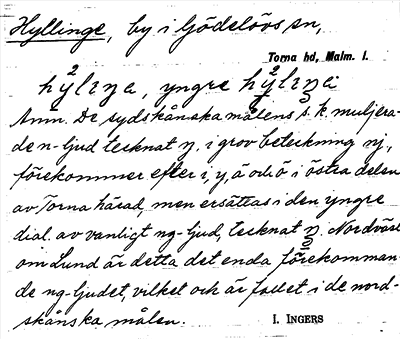 Hyllinge, by i Gödelövs sn,
Torna hd, Malm. l.
hýlıŋa, yngre hýlıŋa
Anm. De sydskånska målens s. k. muljera-
de n-ljud tecknat ŋ, i grov beteckning nj,
förekommer efter i, y, ä och ö i östra delen
av Torna härad, men ersättas i den yngre
dial. av vanligt ng-ljud, tecknat ŋ. Nordväst
om Lund är detta det enda förekomman-
de ng-ljudet, vilket och är fallet i de nord-
skånska målen.
I. INGERS